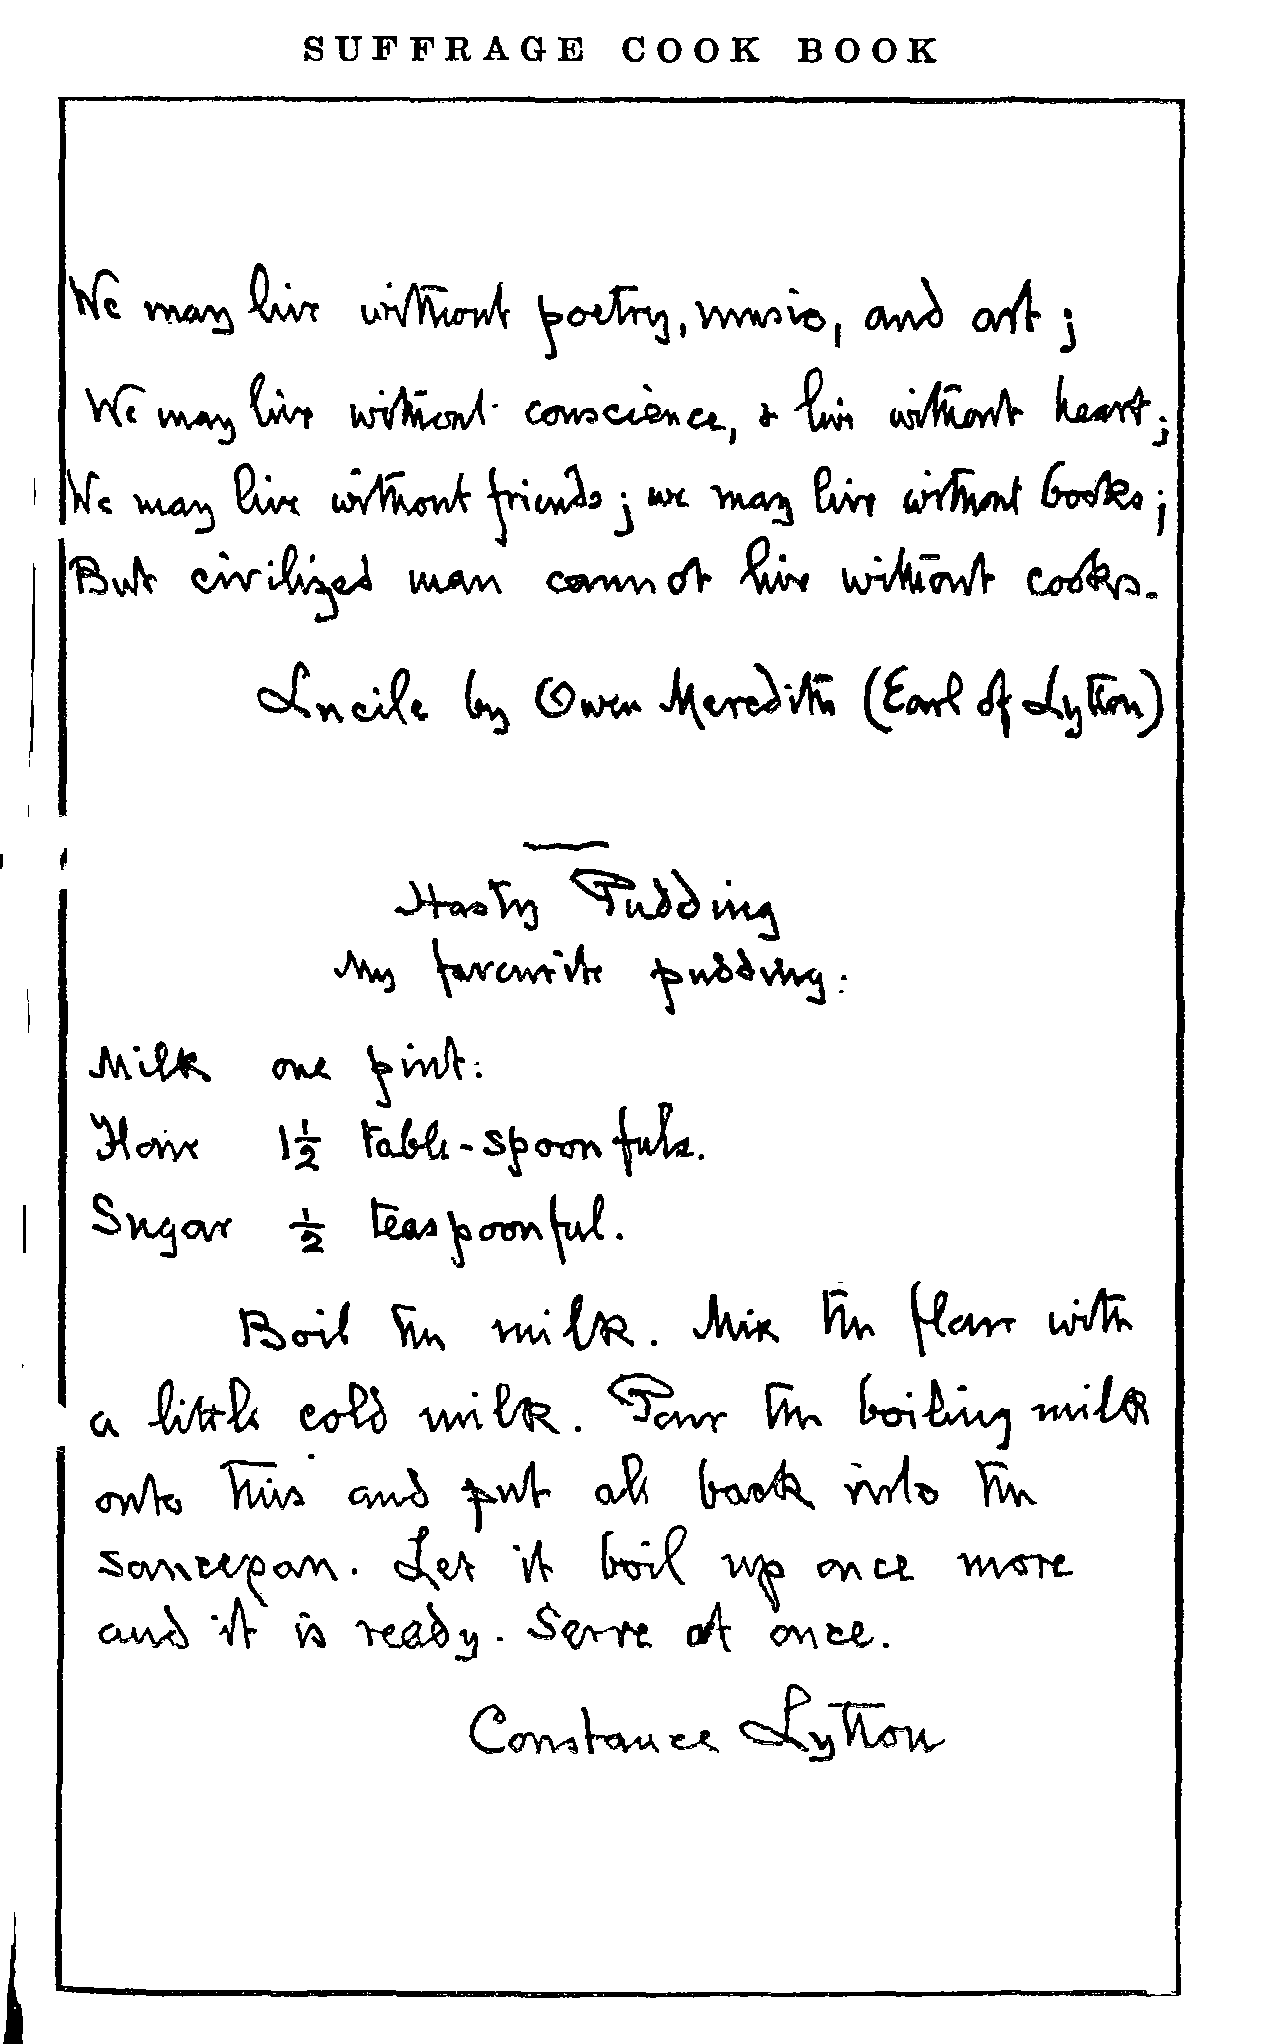 SUFFRAGE COOK BOOK
We may live without poetry, music, and art;
We may live without conscience, & live without heart;
We may live without friends; we may live without books;
But civilized man cannot live without cooks.
Lucile by Owen Meredith (Earl of Lytton)
Hasty Pudding
My favourite pudding:
Milk one pint:
Flour 1½ table-spoonfuls.
Sugar ½ teaspoonful.
Boil the milk. Mix the flour with
a little cold milk. Pour the boiling milk
onto this and put all back into the
saucepan. Let it boil up once more
and it is ready. Serve at once.
Constance Lytton